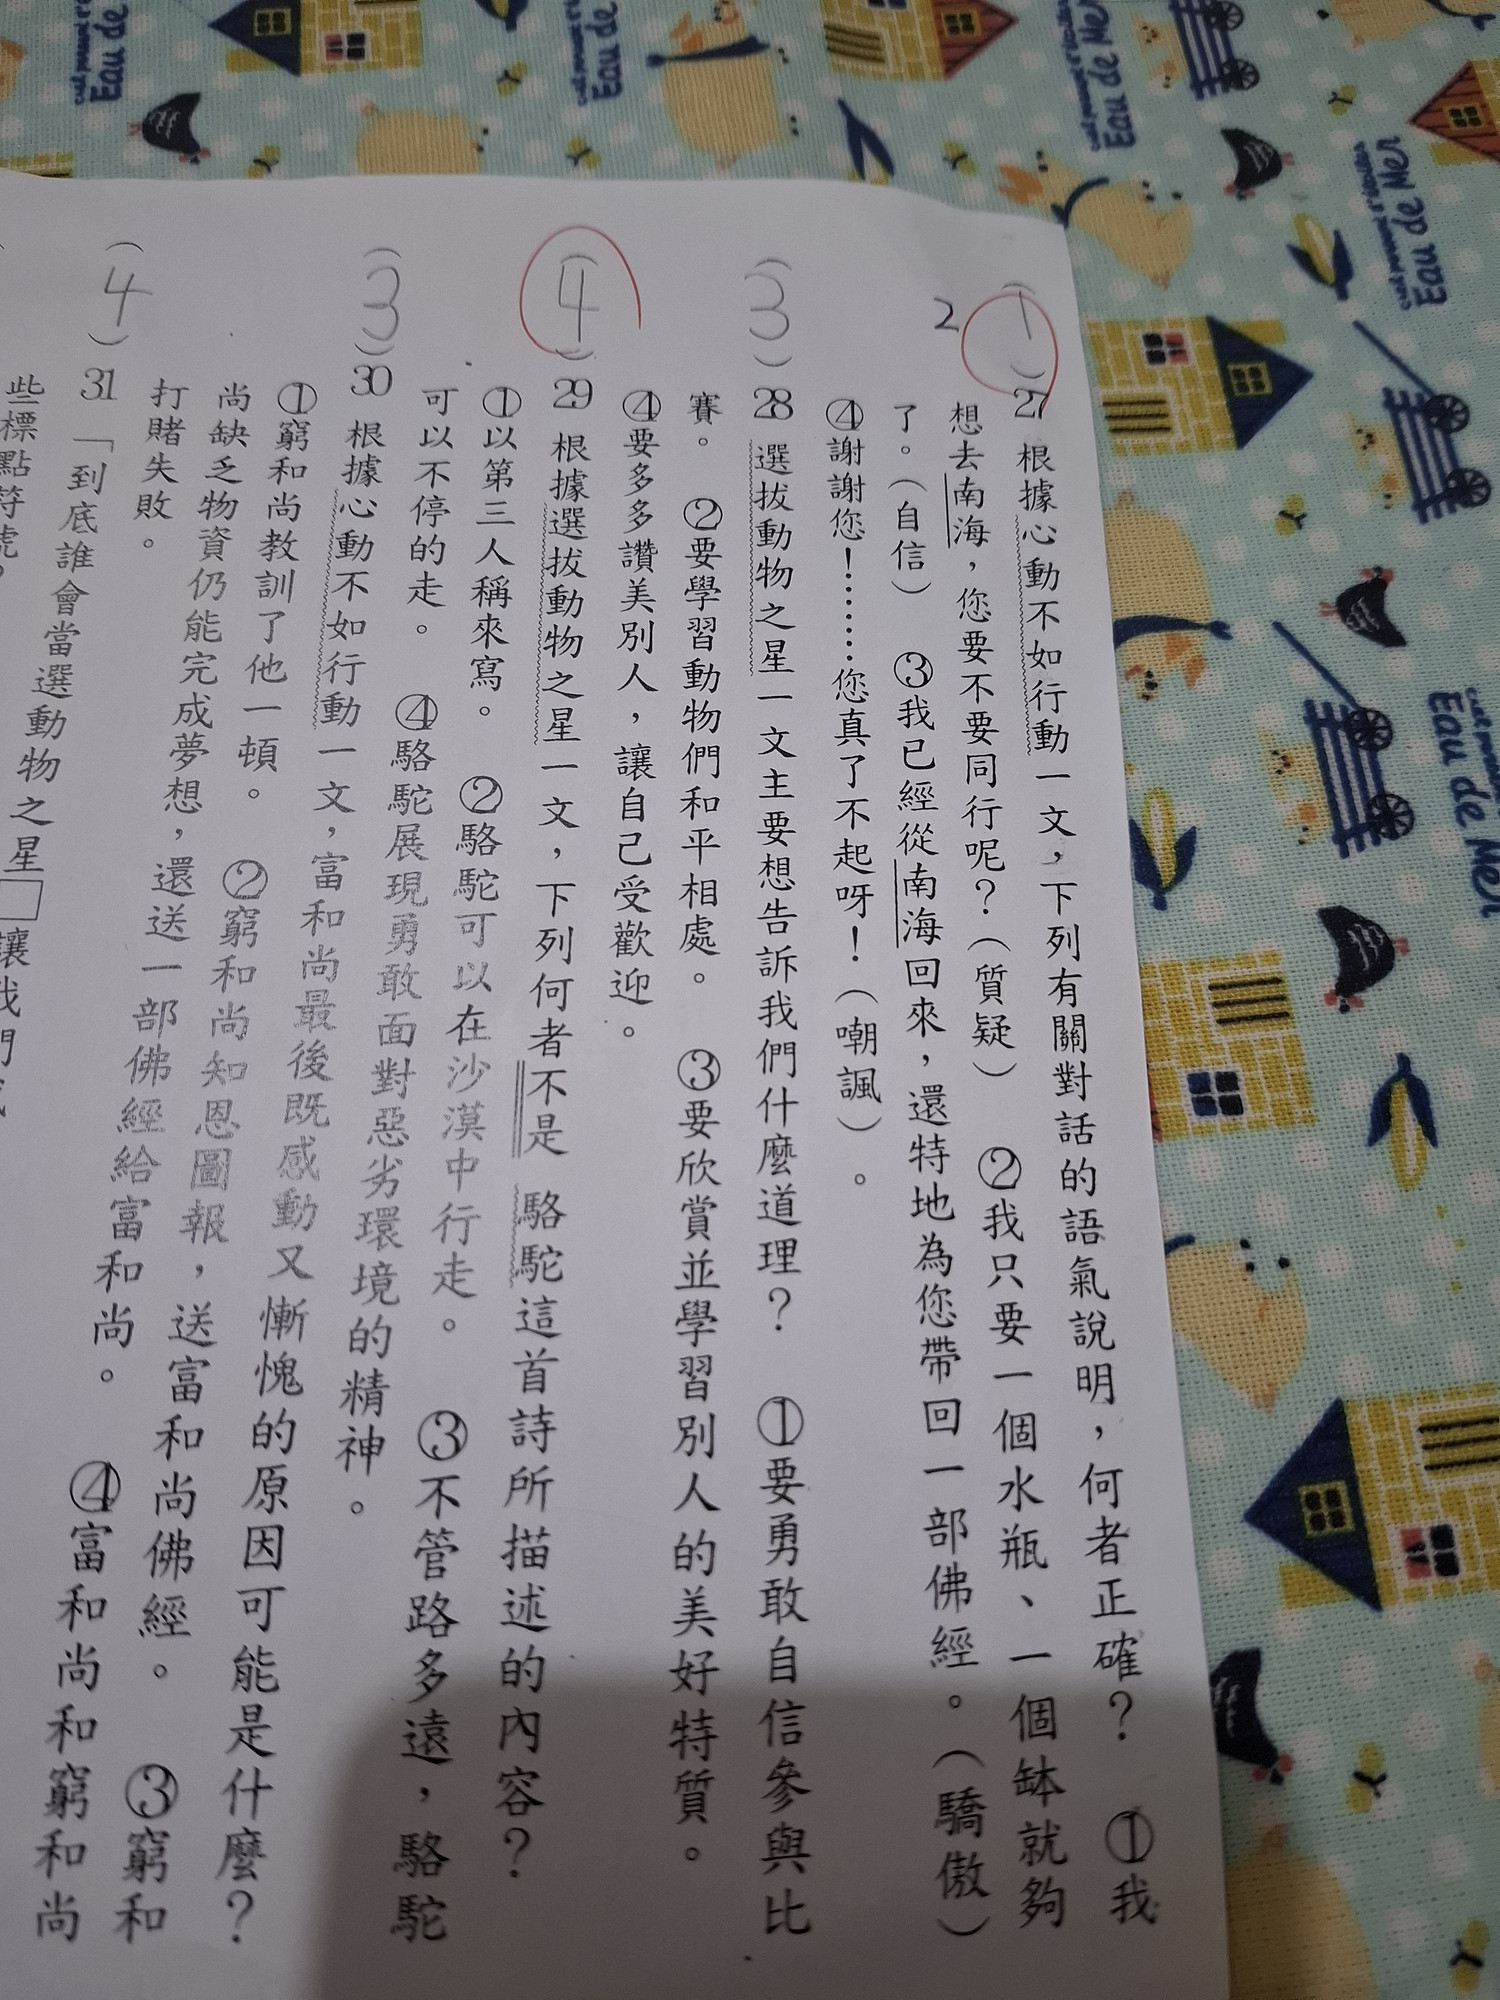 (1)27 根據心動不如行動一文，下列有關對話的語氣說明，何者正確？ ①我
2
想去南海，您要不要同行呢？（質疑） ②我只要一個水瓶、一個缽就夠
了。（自信） ③我已經從南海回來，還特地為您帶回一部佛經。（驕傲）
④謝謝您！……您真了不起呀！（嘲諷）。
(3)28 選拔動物之星一文主要想告訴我們什麼道理？ ①要勇敢自信參與比
賽。 ②要學習動物們和平相處。 ③要欣賞並學習別人的美好特質。
④要多多讚美別人，讓自己受歡迎。
(4)29 根據選拔動物之星一文，下列何者不是 駱駝這首詩所描述的內容？
①以第三人稱來寫。 ②駱駝可以在沙漠中行走。 ③不管路多遠，駱駝
可以不停的走。 ④駱駝展現勇敢面對惡劣環境的精神。
(3)30 根據心動不如行動一文，富和尚最後既感動又慚愧的原因可能是什麼？
①窮和尚教訓了他一頓。 ②窮和尚知恩圖報，送富和尚佛經。 ③窮和
尚缺乏物資仍能完成夢想，還送一部佛經給富和尚。 ④富和尚和窮和尚
打賭失敗。
(4)31 「到底誰會當選動物之星□讓我們
些標點符號？
Eau de Mer
Eau de Mer
Eau de Mer
Eau de
Eau de